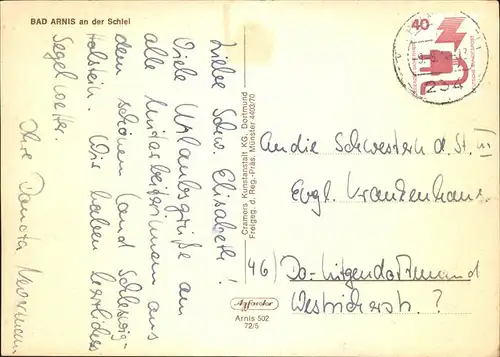 BAD ARNIS an der Schlei
Liebe Schw. Elisabeth!
Viele Urlaubsgrüße an
alle Mitarbeiterinnen aus
dem schönen Land Schleswig-
Holstein. Wir haben herrliches
Segelwetter.
Ihre Danuta
Cramers Kunstanstalt KG, Dortmund
Freigeg. d. Reg.-Präs. Münster 4403/70
40
234
An die Schwestern d. St. III
Evgl. Krankenhaus
46) Do-Lütgendortmund
Westricherstr. ?
Arnis 502
72/5